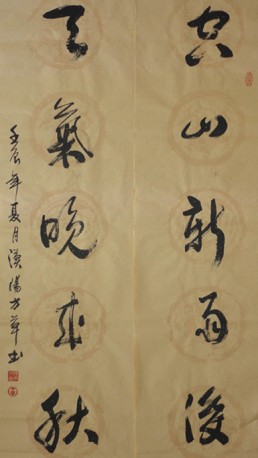 空山新雨後
天氣晚來秋
壬辰年夏月漢陽方草书